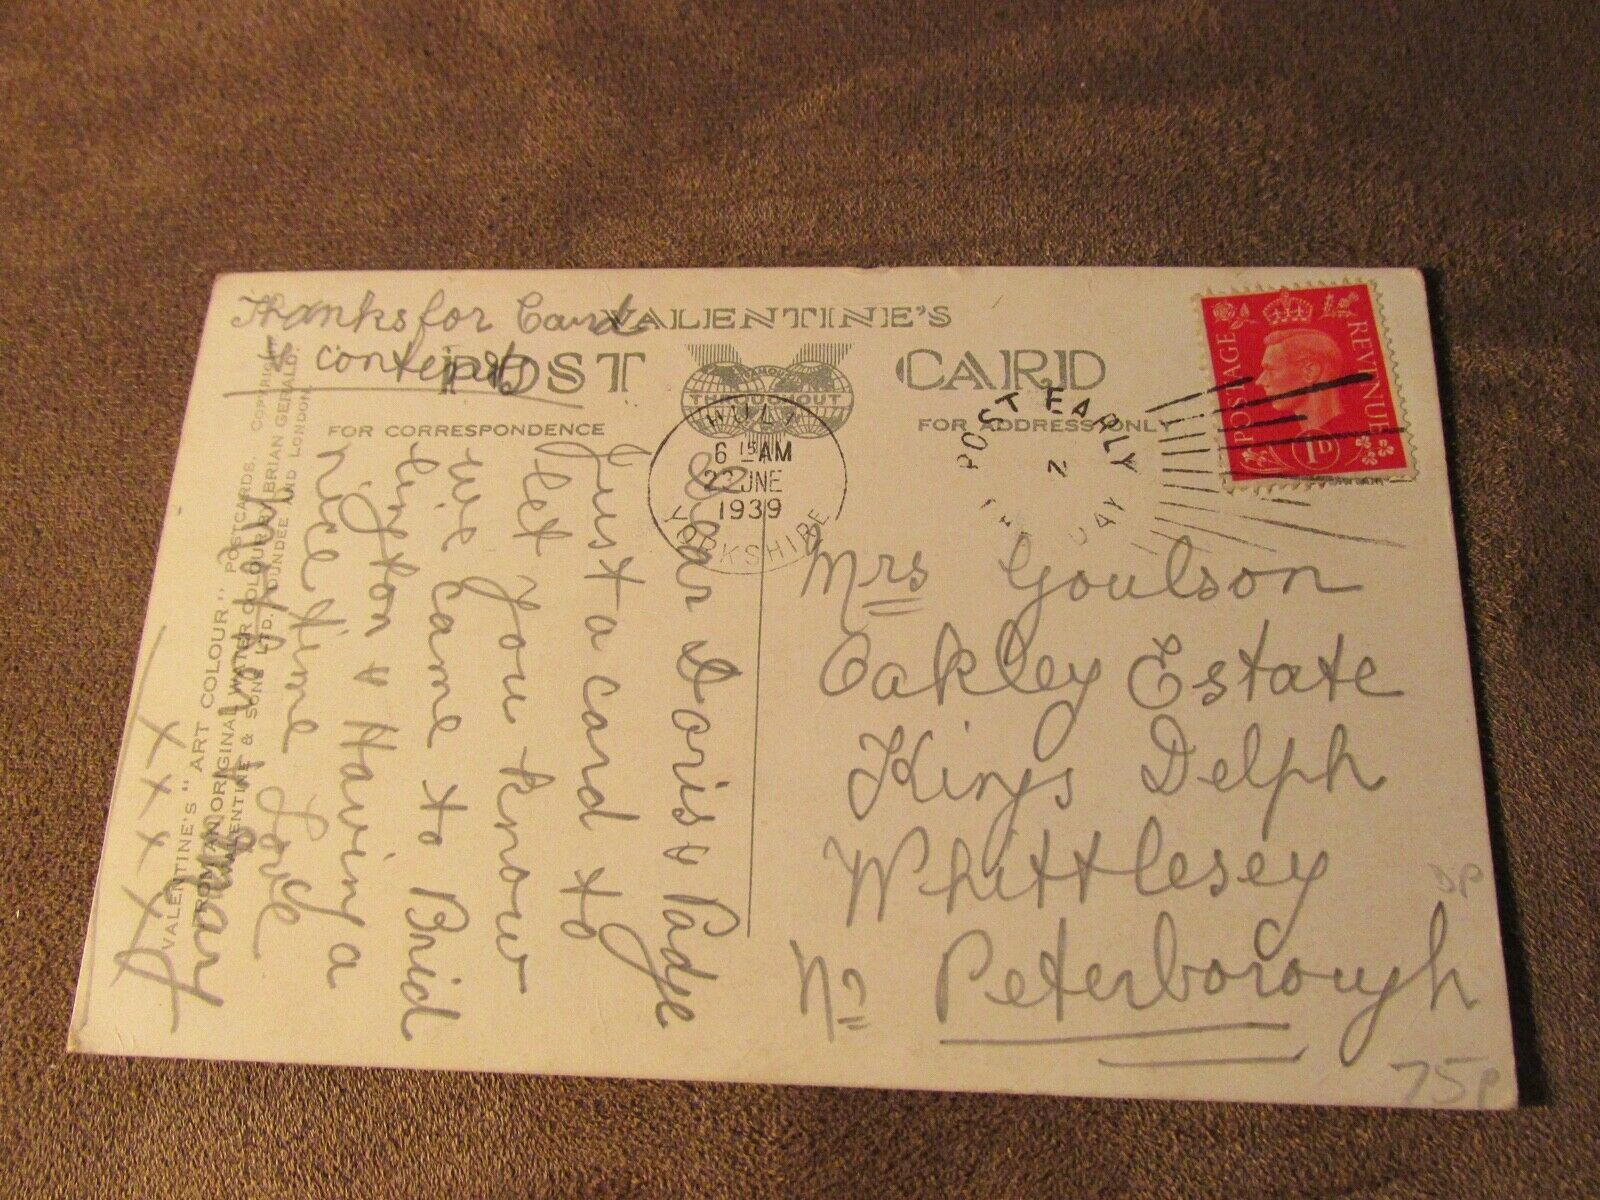 VALENTINE'S
POST CARD
FAMOUS
THROUGHOUT
FOR CORRESPONDENCE
FOR ADDRESS ONLY
Thanks for Card
& contents
Dear Doris & Padge
Just a card to
let you know
we came to Brid
lington & Having a
nice time Love
X X X X X
VALENTINE'S "ART COLOUR" POSTCARDS. COPYRIGHT
FROM AN ORIGINAL WATER COLOUR BY BRIAN GERALD.
VALENTINE & SONS LTD. DUNDEE AND LONDON.
HULL
6 15 AM
22 JNE
1939
YORKSHIRE
POST EARLY
IN THE DAY
POSTAGE REVENUE
1D
Mrs Goulson
Oakley Estate
Kings Delph
Whittlesey
Nr Peterborough
DP
75p